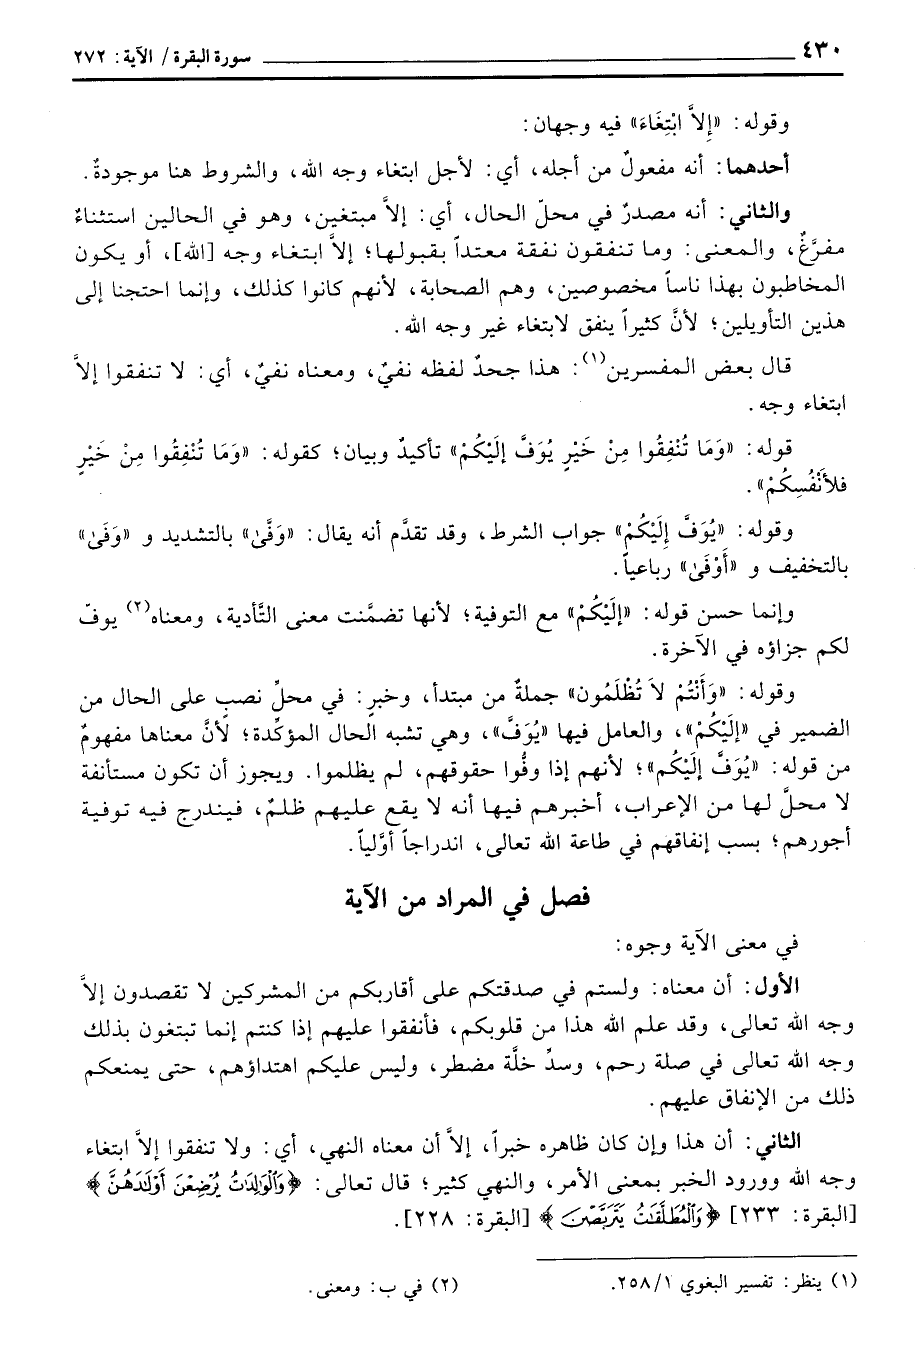 ٤٣٠ سورة البقرة / الآية: ٢٧٢
وقوله: «إِلاَّ ابْتِغَاءَ» فيه وجهان:
أحدهما: أنه مفعولٌ من أجله، أي: لأجل ابتغاء وجه الله، والشروط هنا موجودةٌ.
والثاني: أنه مصدرٌ في محلّ الحال، أي: إلاَّ مبتغين، وهو في الحالين استثناءٌ
مفرَّغٌ، والمعنى: وما تنفقون نفقة معتداً بقبولها؛ إلاَّ ابتغاء وجه [الله]، أو يكون
المخاطبون بهذا ناساً مخصوصين، وهم الصحابة، لأنهم كانوا كذلك، وإنما احتجنا إلى
هذين التأويلين؛ لأنَّ كثيراً ينفق لابتغاء غير وجه الله.
قال بعض المفسرين(١): هذا جحدٌ لفظه نفيٌ، ومعناه نفيٌ، أي: لا تنفقوا إلاَّ
ابتغاء وجه.
قوله: «وَمَا تُنْفِقُوا مِنْ خَيْرٍ يُوَفَّ إِلَيْكُمْ» تأكيدٌ وبيان؛ كقوله: «وَمَا تُنْفِقُوا مِنْ خَيْرٍ
فلأَنْفُسِكُمْ».
وقوله: «يُوَفَّ إِلَيْكُمْ» جواب الشرط، وقد تقدَّم أنه يقال: «وَفَّىٰ» بالتشديد و «وَفَىٰ»
بالتخفيف و «أَوْفَىٰ» رباعياً.
وإنما حسن قوله: «إِلَيْكُمْ» مع التوفية؛ لأنها تضمَّنت معنى التَّأدية، ومعناه(٢) يوفّ
لكم جزاؤه في الآخرة.
وقوله: «وَأَنْتُمْ لاَ تُظْلَمُون» جملةٌ من مبتدأ، وخبرٍ: في محلِّ نصبٍ على الحال من
الضمير في «إِلَيْكُمْ»، والعامل فيها «يُوَفَّ»، وهي تشبه الحال المؤكِّدة؛ لأنَّ معناها مفهومٌ
من قوله: «يُوَفَّ إِلَيْكُم»؛ لأنهم إذا وفُّوا حقوقهم، لم يظلموا. ويجوز أن تكون مستأنفة
لا محلَّ لها من الإعراب، أخبرهم فيها أنه لا يقع عليهم ظلمٌ، فيندرج فيه توفية
أجورهم؛ بسب إنفاقهم في طاعة الله تعالى، اندراجاً أوَّلياً.
فصل في المراد من الآية
في معنى الآية وجوه:
الأول: أن معناه: ولستم في صدقتكم على أقاربكم من المشركين لا تقصدون إلاَّ
وجه الله تعالى، وقد علم الله هذا من قلوبكم، فأنفقوا عليهم إذا كنتم إنما تبتغون بذلك
وجه الله تعالى في صلة رحم، وسدِّ خلَّة مضطر، وليس عليكم اهتداؤهم، حتى يمنعكم
ذلك من الإنفاق عليهم.
الثاني: أن هذا وإن كان ظاهره خبراً، إلاَّ أن معناه النهي، أي: ولا تنفقوا إلاَّ ابتغاء
وجه الله وورود الخبر بمعنى الأمر، والنهي كثير؛ قال تعالى: ﴿وَٱلْوَٰلِدَٰتُ يُرْضِعْنَ أَوْلَٰدَهُنَّ﴾
[البقرة: ٢٣٣] ﴿وَٱلْمُطَلَّقَٰتُ يَتَرَبَّصْنَ﴾ [البقرة: ٢٢٨].
(١) ينظر: تفسير البغوي ٢٥٨/١. (٢) في ب: ومعنى.